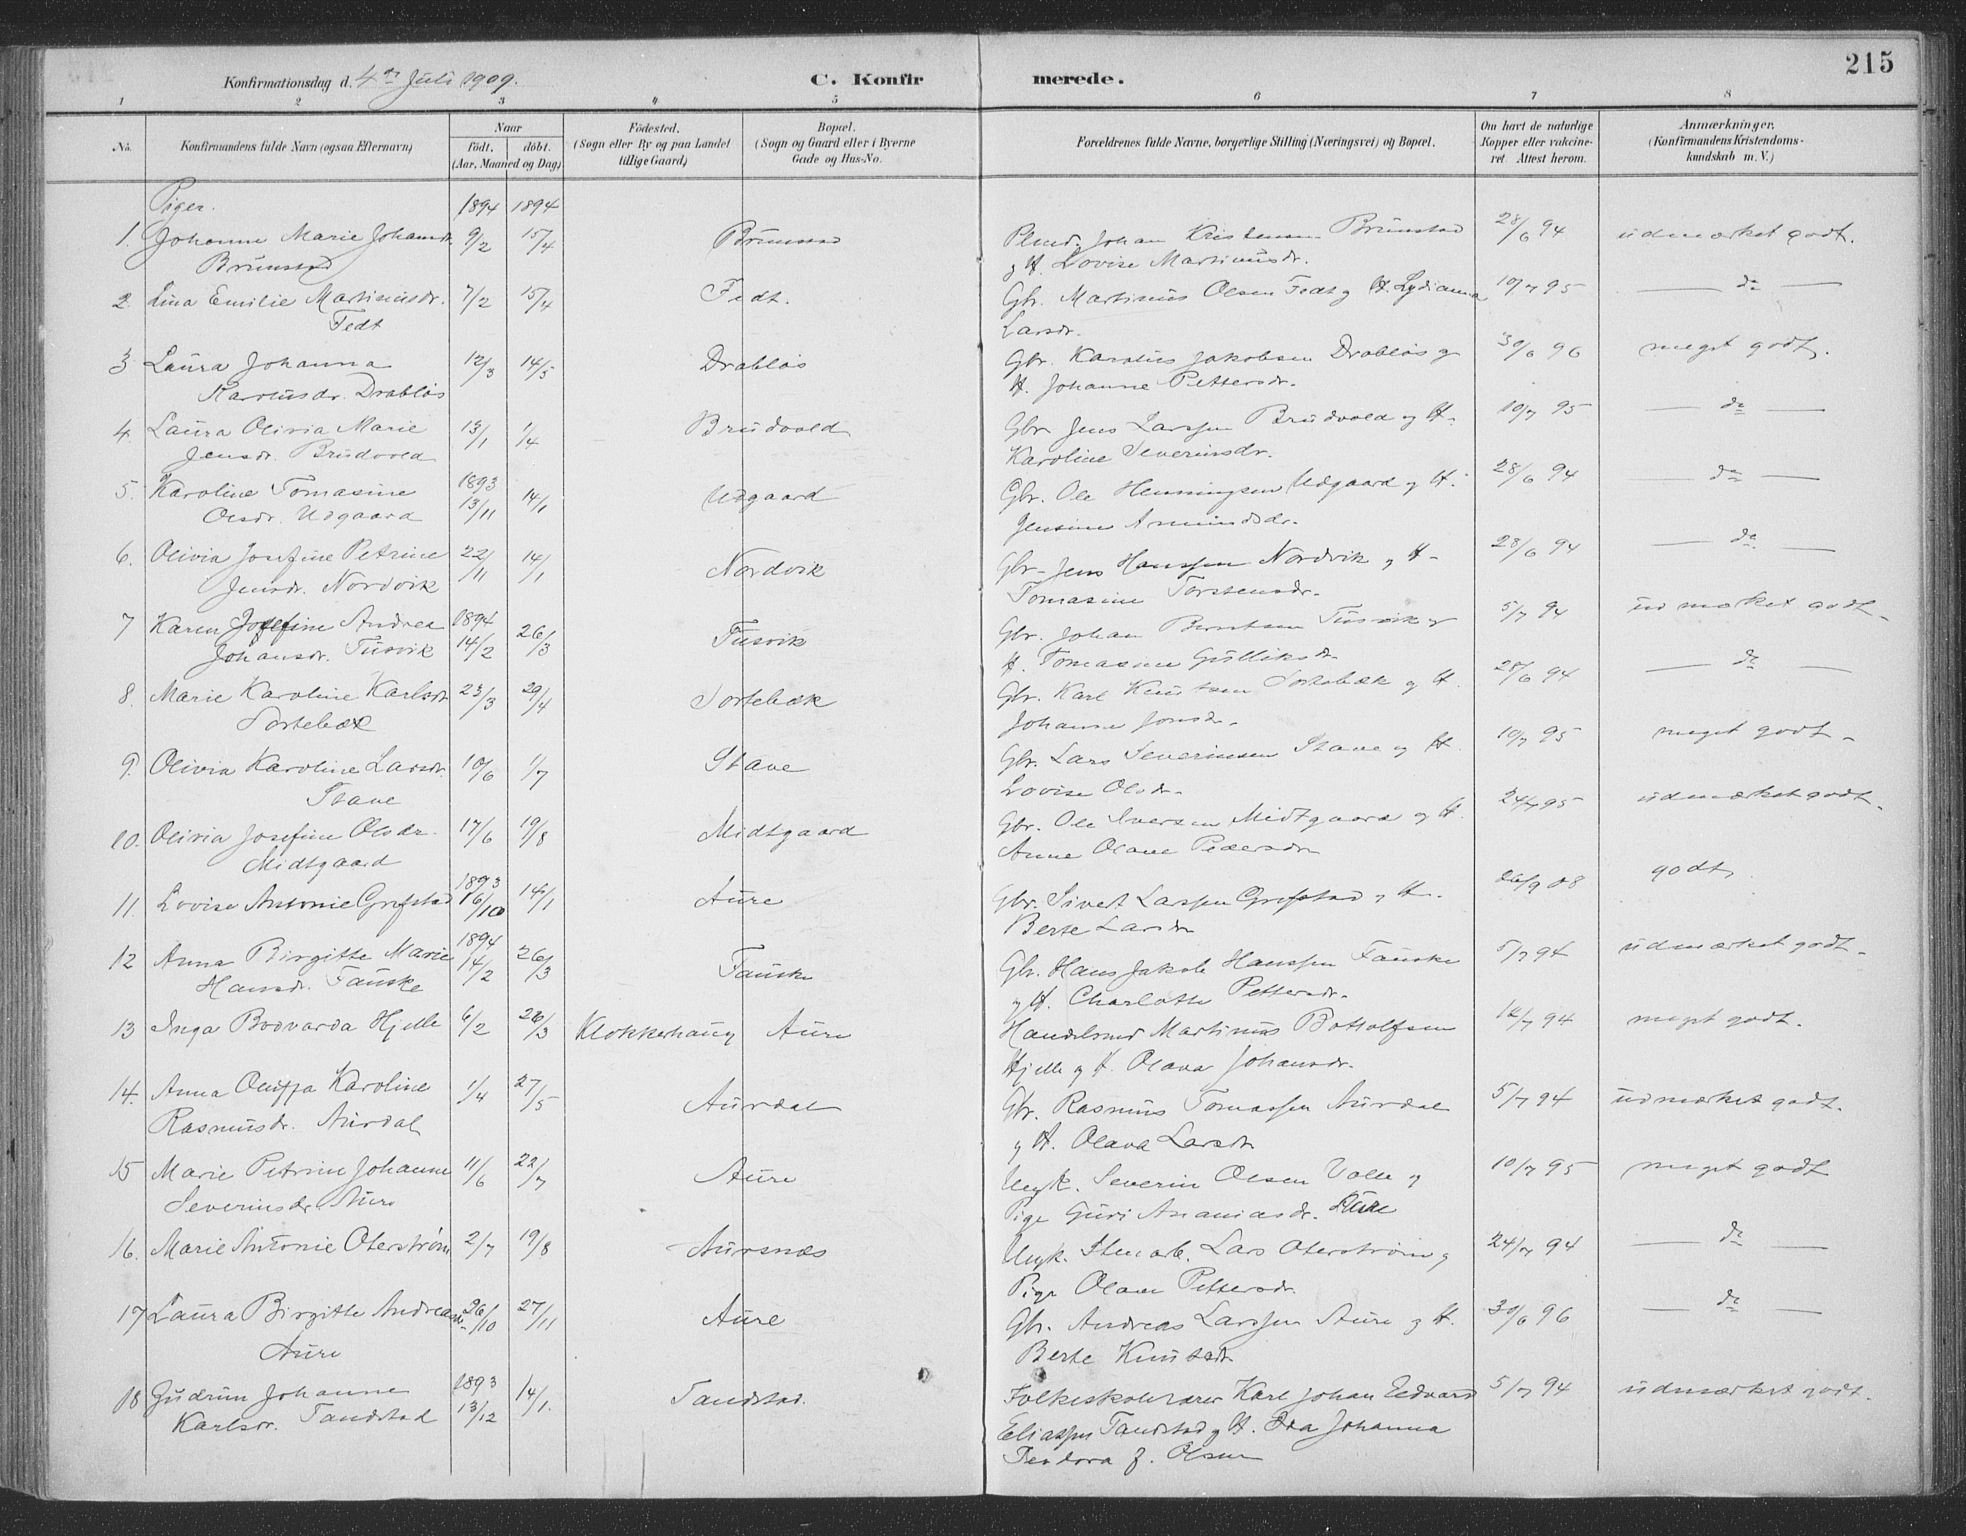 215
Konfirmationsdag d. 4de Juli 1909.
C. Konfirmerede.
1 2 3 4 5 6 7 8
No.
Konfirmandens fulde Navn (ogsaa Efternavn)
Naar
födt. döbt.
(Aar, Maaned og Dag)
Födested.
(Sogn eller By og paa Landet
tillige Gaard)
Bopæl.
(Sogn og Gaard eller i Byerne
Gade og Hus-No.
Forældrenes fulde Navne, borgerlige Stilling (Næringsvei) og Bopæl.
Om havt de naturlige
Kopper eller vakcine-
ret. Attest herom.
Anmærkninger.
(Konfirmandens Kristendoms-
kundskab m. V.)
Piger. 1894 1894
1. Johanne Marie Johansdr. 9/2 15/4 Brunstad Johan Kristensen Brunstad 28/6 94 udmærket godt.
Brunstad g H. Lovise Martinusdr.
2. Lina Emilie Martinusdr. 7/2 15/4 Fedt. Gbr. Martinus Olsen Fedt g H. Lydianna 10/7 95 — do —
Fedt Larsdr.
3 Laura Johanna 12/3 14/5 Drabløs Gbr. Karolus Jakobsen Drabløs g 30/6 96 meget godt.
Karolusdr. Drabløs H. Johanne Pettersdr.
4. Laura Olivia Marie 13/1 1/4 Brudvold Gbr Jens Larssen Brudvold g H. 10/7 95 — do —
Jensdr. Brudvold Karoline Severinsdr.
5. Karoline Tomasine 1893 13/11 14/1 Udgaard Gbr. Ole Henningsen Udgaard g H. 28/6 94 — do —
Olsdr. Udgaard Jensine Amundsdr.
6. Olivia Josefine Petrine 22/11 14/1 Nordvik Gbr. Jens Hanssen Nordvik g H. 28/6 94 — do —
Jensdr. Nordvik Tomasine Torstensdr.
7 Karen Josefine Andrea 1894 14/2 26/3 Tusvik Gbr. Johan Berntsen Tusvik g 5/7 94 udmærket godt.
Johansdr. Tusvik H. Tomasine Gulliksdr
8. Marie Karoline Karlsdr 23/3 29/4 Sortebæk Gbr. Karl Knutsen Sortebæk g H. 28/6 94 — do —
Sortebæk Johanne Jonsdr.
9. Olivia Karoline Larsdr. 10/6 1/7 Stave Gbr. Lars Severinsen Stave g H. 10/7 95 meget godt.
Stave Lovise Olsdr.
10. Olivia Josefine Olsdr. 17/6 19/8 Midtgaard Gbr. Ole Iversen Midtgaard g H. 24/7 95 udmærket godt.
Midtgaard Anne Olave Pedersdr
11. Lovise Antonie Grefstad 1893 16/10 14/1 Aure Gbr. Sivert Larssen Grefstad g H. 26/9 08 godt,
Berte Larsdr
12 Anna Birgitte Marie 1894 14/2 26/3 Fauske Gbr. Hans Jakob Hanssen Fauske 5/7 94 udmærket godt.
Hansdr. Fauske g H. Charlotte Pettersdr.
13 Inga Bodvarda Hjelle 6/2 26/3 Klokkerhaug Aure Handelsmd Martinus Bottolfsen 14/7 94 meget godt.
Hjelle g H. Olava Johansdr.
14. Anna Karoline 1/4 27/5 Aurdal Gbr. Rasmus Tomassen Aurdal 5/7 94 udmærket godt.
Rasmusdr. Aurdal g H. Olava Larsdr
15 Marie Petrine Johanne 11/6 22/7 Aure Ungk. Severin Olsen Valle g 10/7 95 meget godt
Severinsdr Aure Pige Guri Ananiasdr. Aure
16. Marie Antonie Oterstrøm 2/7 19/8 Aursnæs Ungk. Lars Oterstrøm g 24/7 94 — do —
Pige Olave Pettersdr.
17 Laura Birgitte Andreasdr. 26/10 27/11 Aure Gbr. Andreas Larssen Aure g H. 30/6 96 — do —
Aure Berte Knutsdr
18 Gudrun Johanne 1893 13/12 14/1. Tandstad. Folkeskolelærer Karl Johan Edvard 5/7 94 udmærket godt.
Karlsdr. Tandstad Eliassen Tandstad g H. Johanna
Teodora f. Olsen